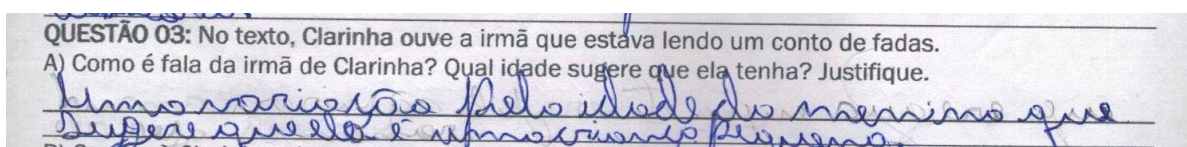 QUESTÃO 03: No texto, Clarinha ouve a irmã que estava lendo um conto de fadas.
A) Como é fala da irmã de Clarinha? Qual idade sugere que ela tenha? Justifique.
Uma variação pelo idade da menina que
sugere que ela é uma criança pequena.